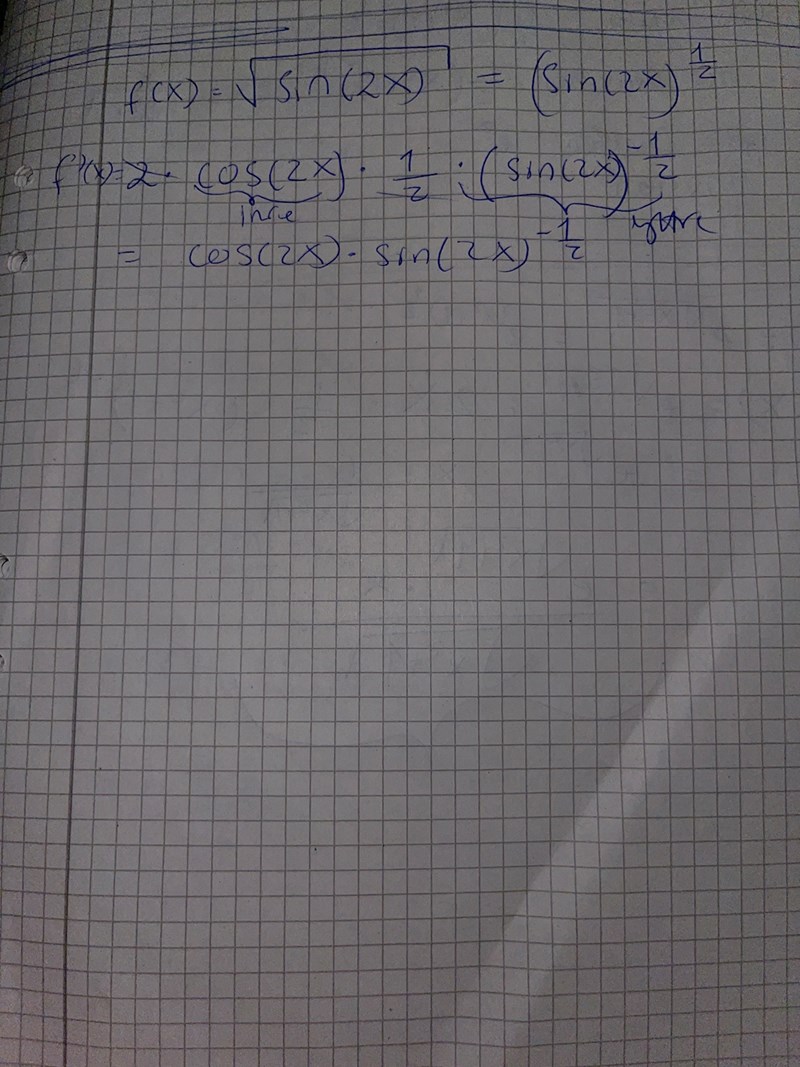 f(x) = √sin(2x) = (sin(2x))^{1/2}
f'(x) = 2 · cos(2x) · 1/2 · (sin(2x))^{-1/2}
inre yttre
= cos(2x) · sin(2x)^{-1/2}